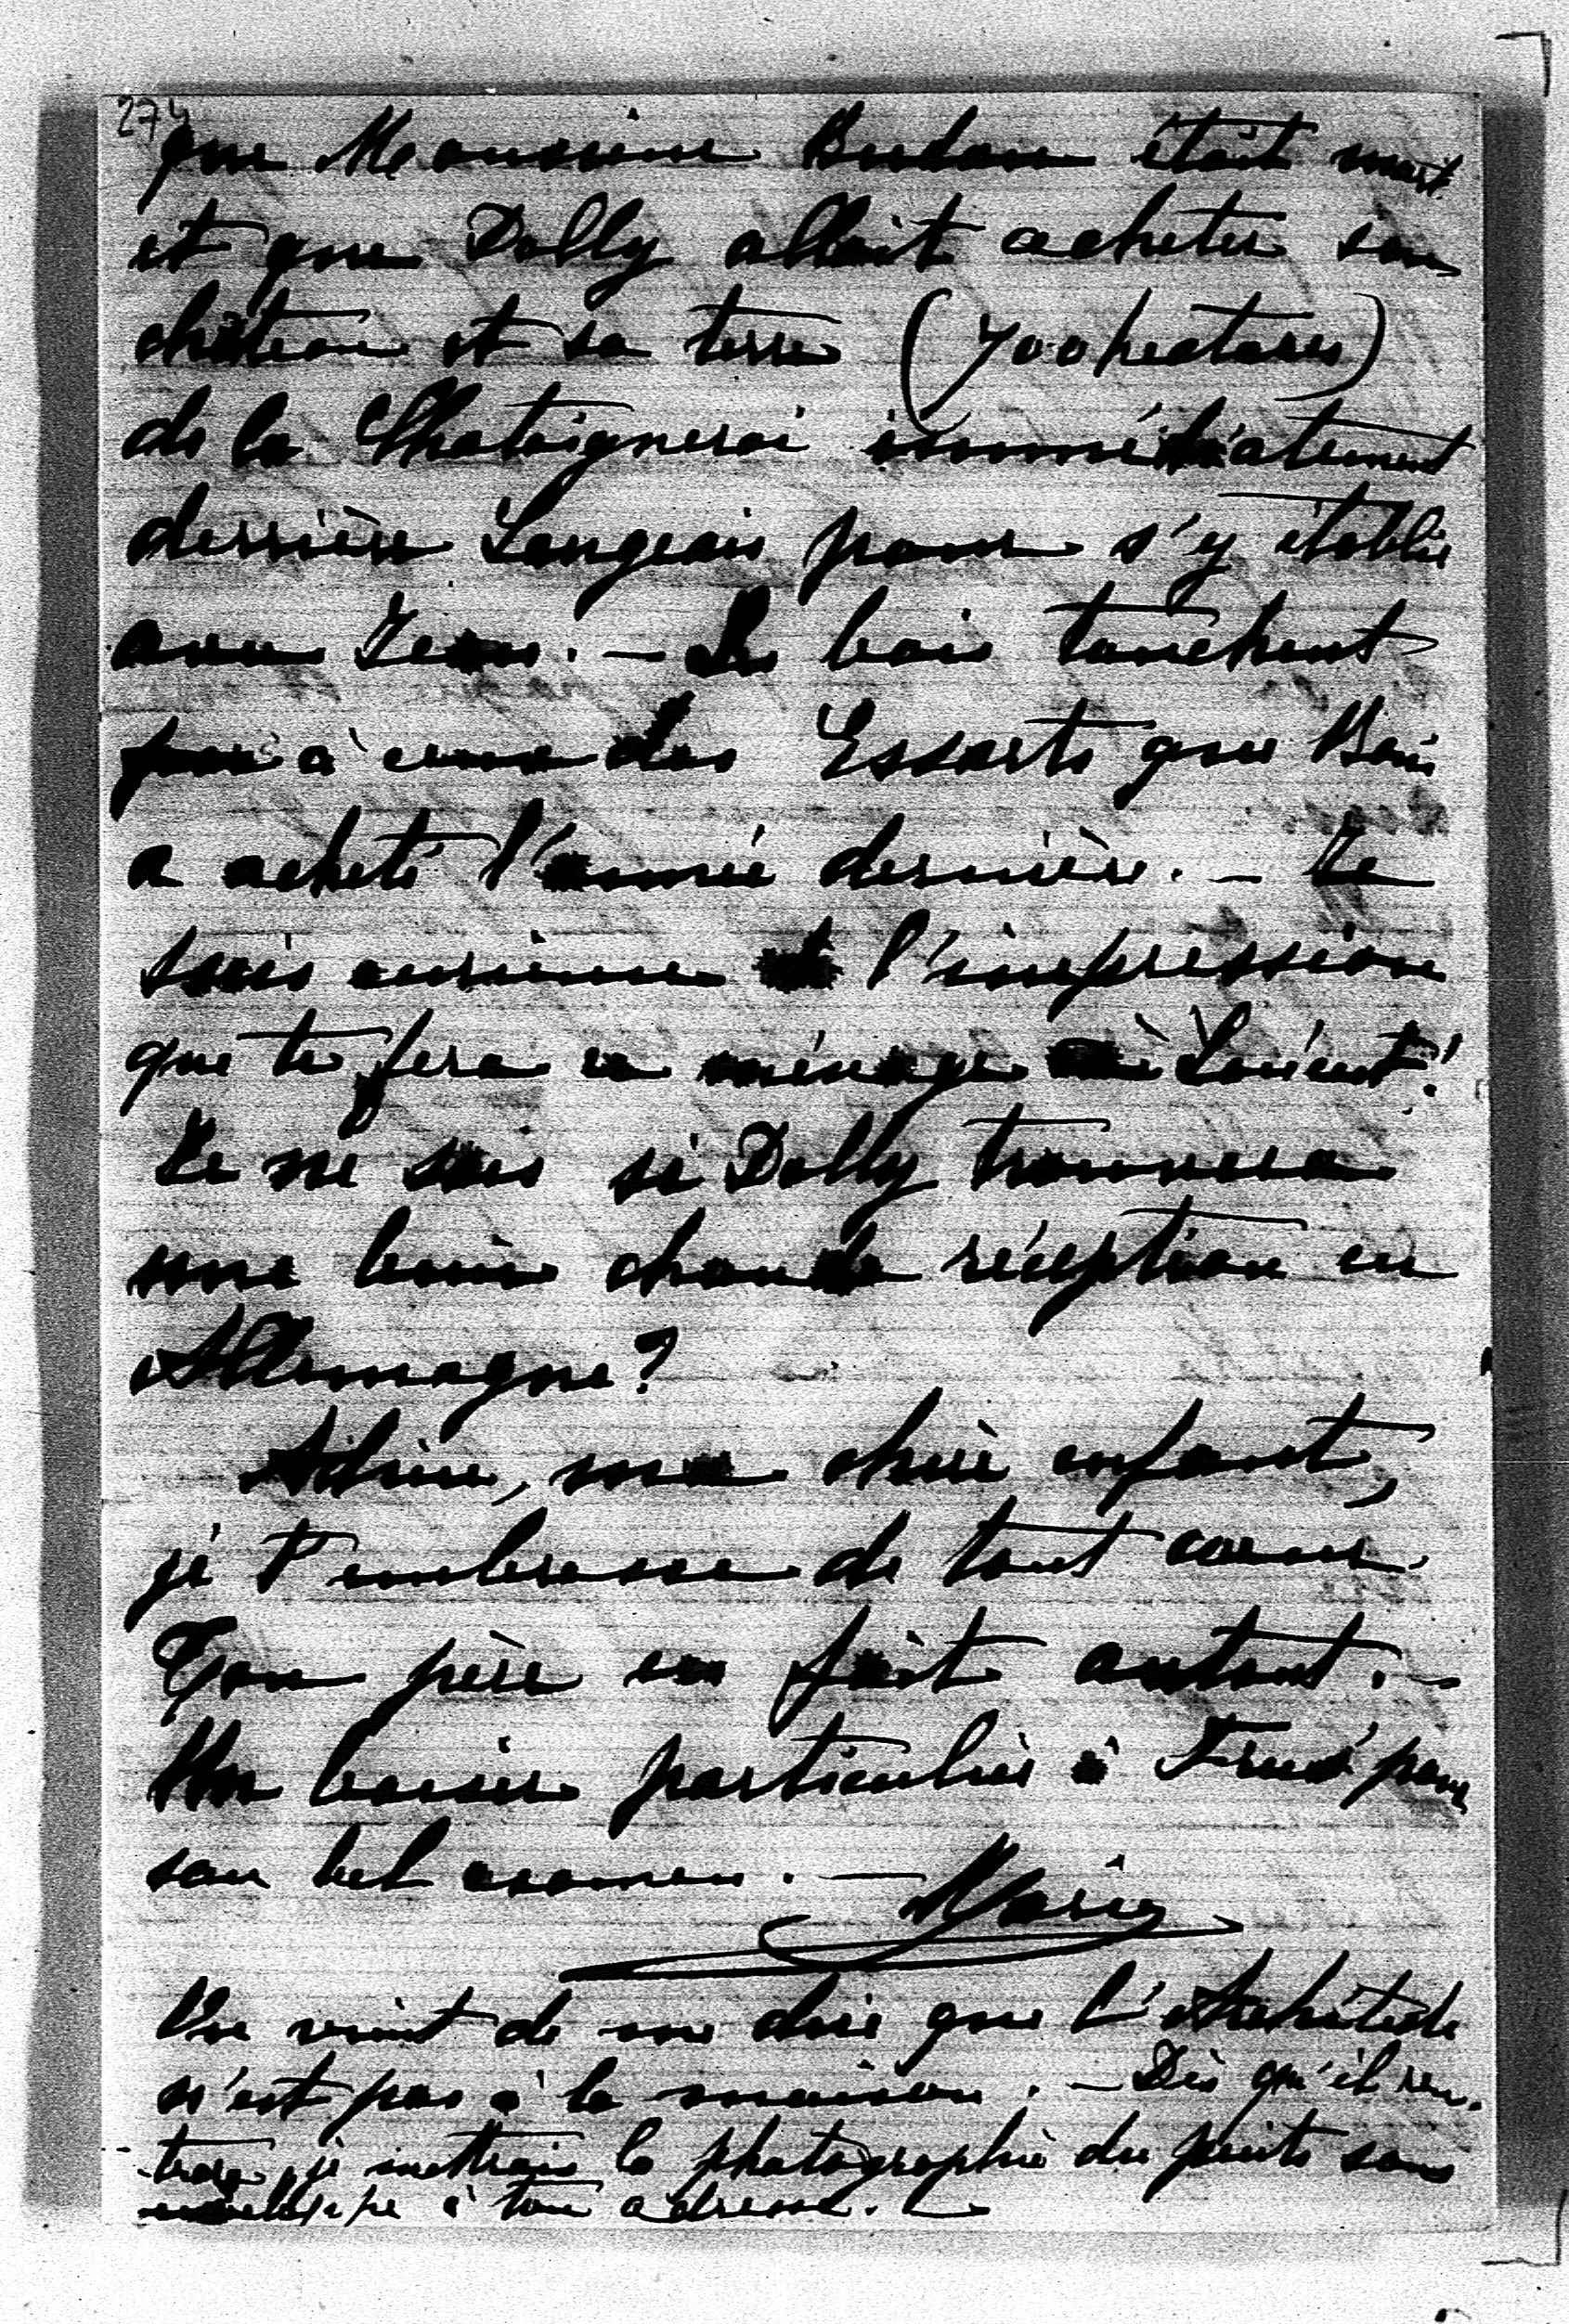 274
que Monsieur Budan était mort
et que Dolly allait acheter son
château et sa terre (700 hectares)
de la Chataignerai immédiatement
derrière Langeais pour s'y établir
avec Jean. - Les bois touchent
à ceux des Essarts que
a acheté l'année dernière. - Je
suis curieuse de l'impression
que te fera ce ménage à Lorient!
Je ne sais si Dolly trouvera
une bien chaude réception en
Allemagne?
Adieu, ma chère enfant,
je t'embrasse de tout coeur.
Ton père en fait autant. -
Un baiser particulier à pour
son bel examen. - Marie
On vient de me dire que l'Architecte
n'est pas à la maison. - Dès qu'il ren-
trera, je mettrai la photographie du puits sous
enveloppe à ton adresse. -